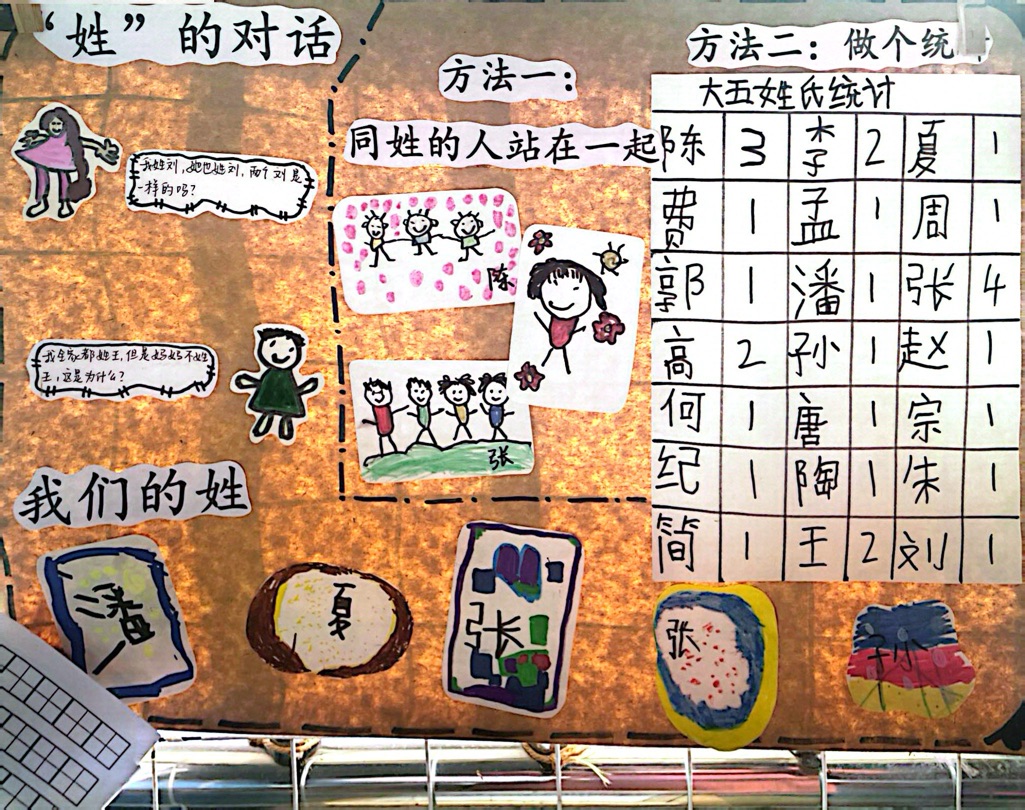 “姓”的对话
我姓刘,她也姓刘,两个刘是
一样的吗?
我全家都姓王,但是妈妈不姓
王,这是为什么?
方法一:
同姓的人站在一起
陈
张
方法二:做个统
大五姓氏统计
陈 3 李 2 夏 1
费 1 孟 1 周 1
郭 1 潘 1 张 4
高 2 孙 1 赵 1
何 1 唐 1 宗 1
纪 1 陶 1 朱 1
简 1 王 2 刘 1
我们的姓
夏
张
张
孙